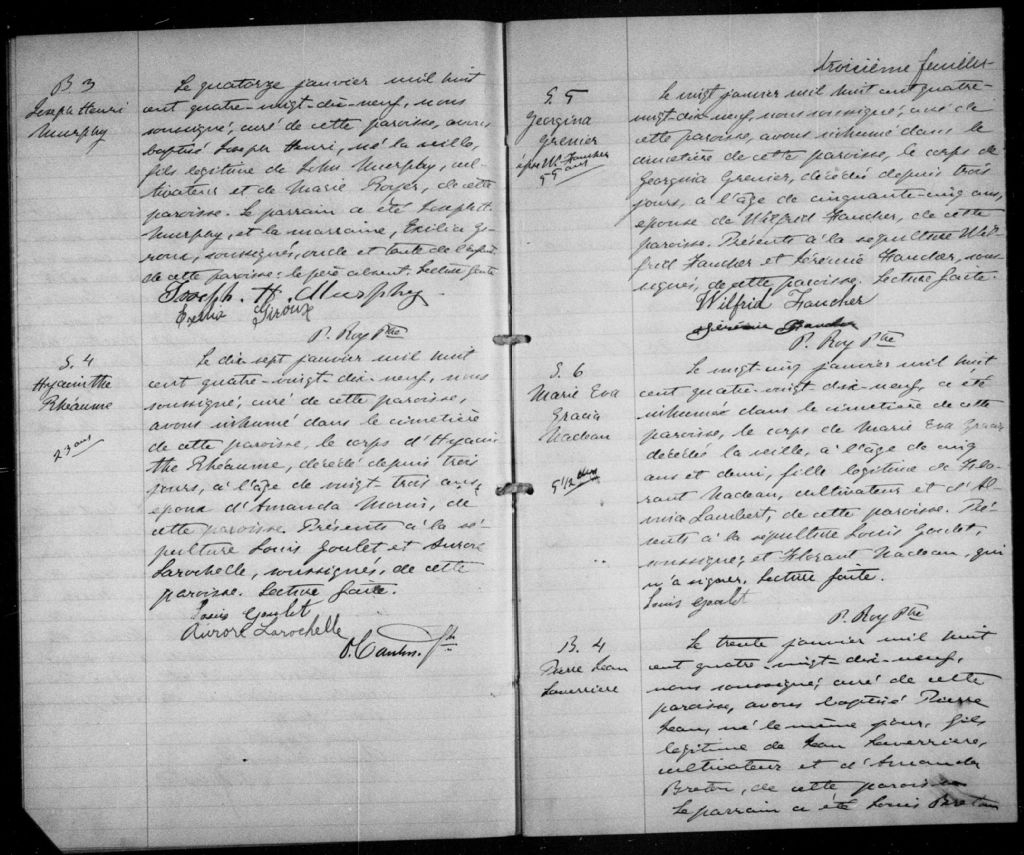 B 3
Joseph Henri
Murphy
Le quatorze janvier mil huit
cent quatre-vingt-dix-neuf, nous
soussigné, curé de cette paroisse, avons
baptisé Joseph Henri, né la veille,
fils légitime de John Murphy, cul-
tivateur et de Marie Royer, de cette
paroisse. Le parrain a été Joseph H.
Murphy, et la marraine, Exilia Gi-
roux, soussignés, oncle et tante de l'enfant
de cette paroisse; le père absent. Lecture faite
Joseph. H. Murphy.
Exilia Giroux
P. Roy Ptre
S. 4
Hyacinthe
Rhéaume
23 ans
Le dix-sept janvier mil huit
cent quatre-vingt-dix-neuf, nous
soussigné, curé de cette paroisse,
avons inhumé dans le cimetière
de cette paroisse, le corps d'Hyacin
the Rhéaume, décédé depuis trois
jours, à l'âge de vingt-trois ans,
époux d'Amanda Morin, de
cette paroisse. Présents à la sé-
pulture Louis Goulet et Aurore
Larochelle, soussignés, de cette
paroisse. Lecture faite.
Louis Goulet
Aurore Larochelle
Ptre
troisième feuillet
S. 5
Georgina
Grenier
épse W. Faucher
55 ans
Le vingt janvier mil huit cent quatre-
vingt-dix-neuf, nous soussigné, curé de
cette paroisse, avons inhumé dans le
cimetière de cette paroisse, le corps de
Georgina Grenier, décédée depuis trois
jours, à l'âge de cinquante-cinq ans,
épouse de Wilfrid Faucher, de cette
paroisse. Présents à la sépulture Wil-
frid Faucher et Jérémie Faucher, sous-
signés, de cette paroisse. Lecture faite.
Wilfrid Faucher
Jérémie Faucher
P. Roy Ptre
S. 6
Marie Eva
Gracia
Nadeau
5 1/2 ans
Le vingt-cinq janvier mil huit
cent quatre-vingt-dix-neuf, a été
inhumée dans le cimetière de cette
paroisse, le corps de Marie Eva Gracia
décédée la veille, à l'âge de cinq
ans et demi, fille légitime de Flo-
rant Nadeau, cultivateur et d'Al-
Lambert, de cette paroisse. Pré-
sents à la sépulture Louis Goulet,
soussigné, et Florant Nadeau, qui
n'a signer. Lecture faite.
Louis Goulet
P. Roy Ptre
B. 4
Pierre Jean
Laverriere
Le trente janvier mil huit
cent quatre-vingt-dix-neuf,
nous soussigné, curé de cette
paroisse, avons baptisé Pierre
Jean, né le même jour, fils
légitime de Jean Laverriere,
cultivateur et d'Amanda
Breton, de cette paroisse
Le parrain a été Louis Breton